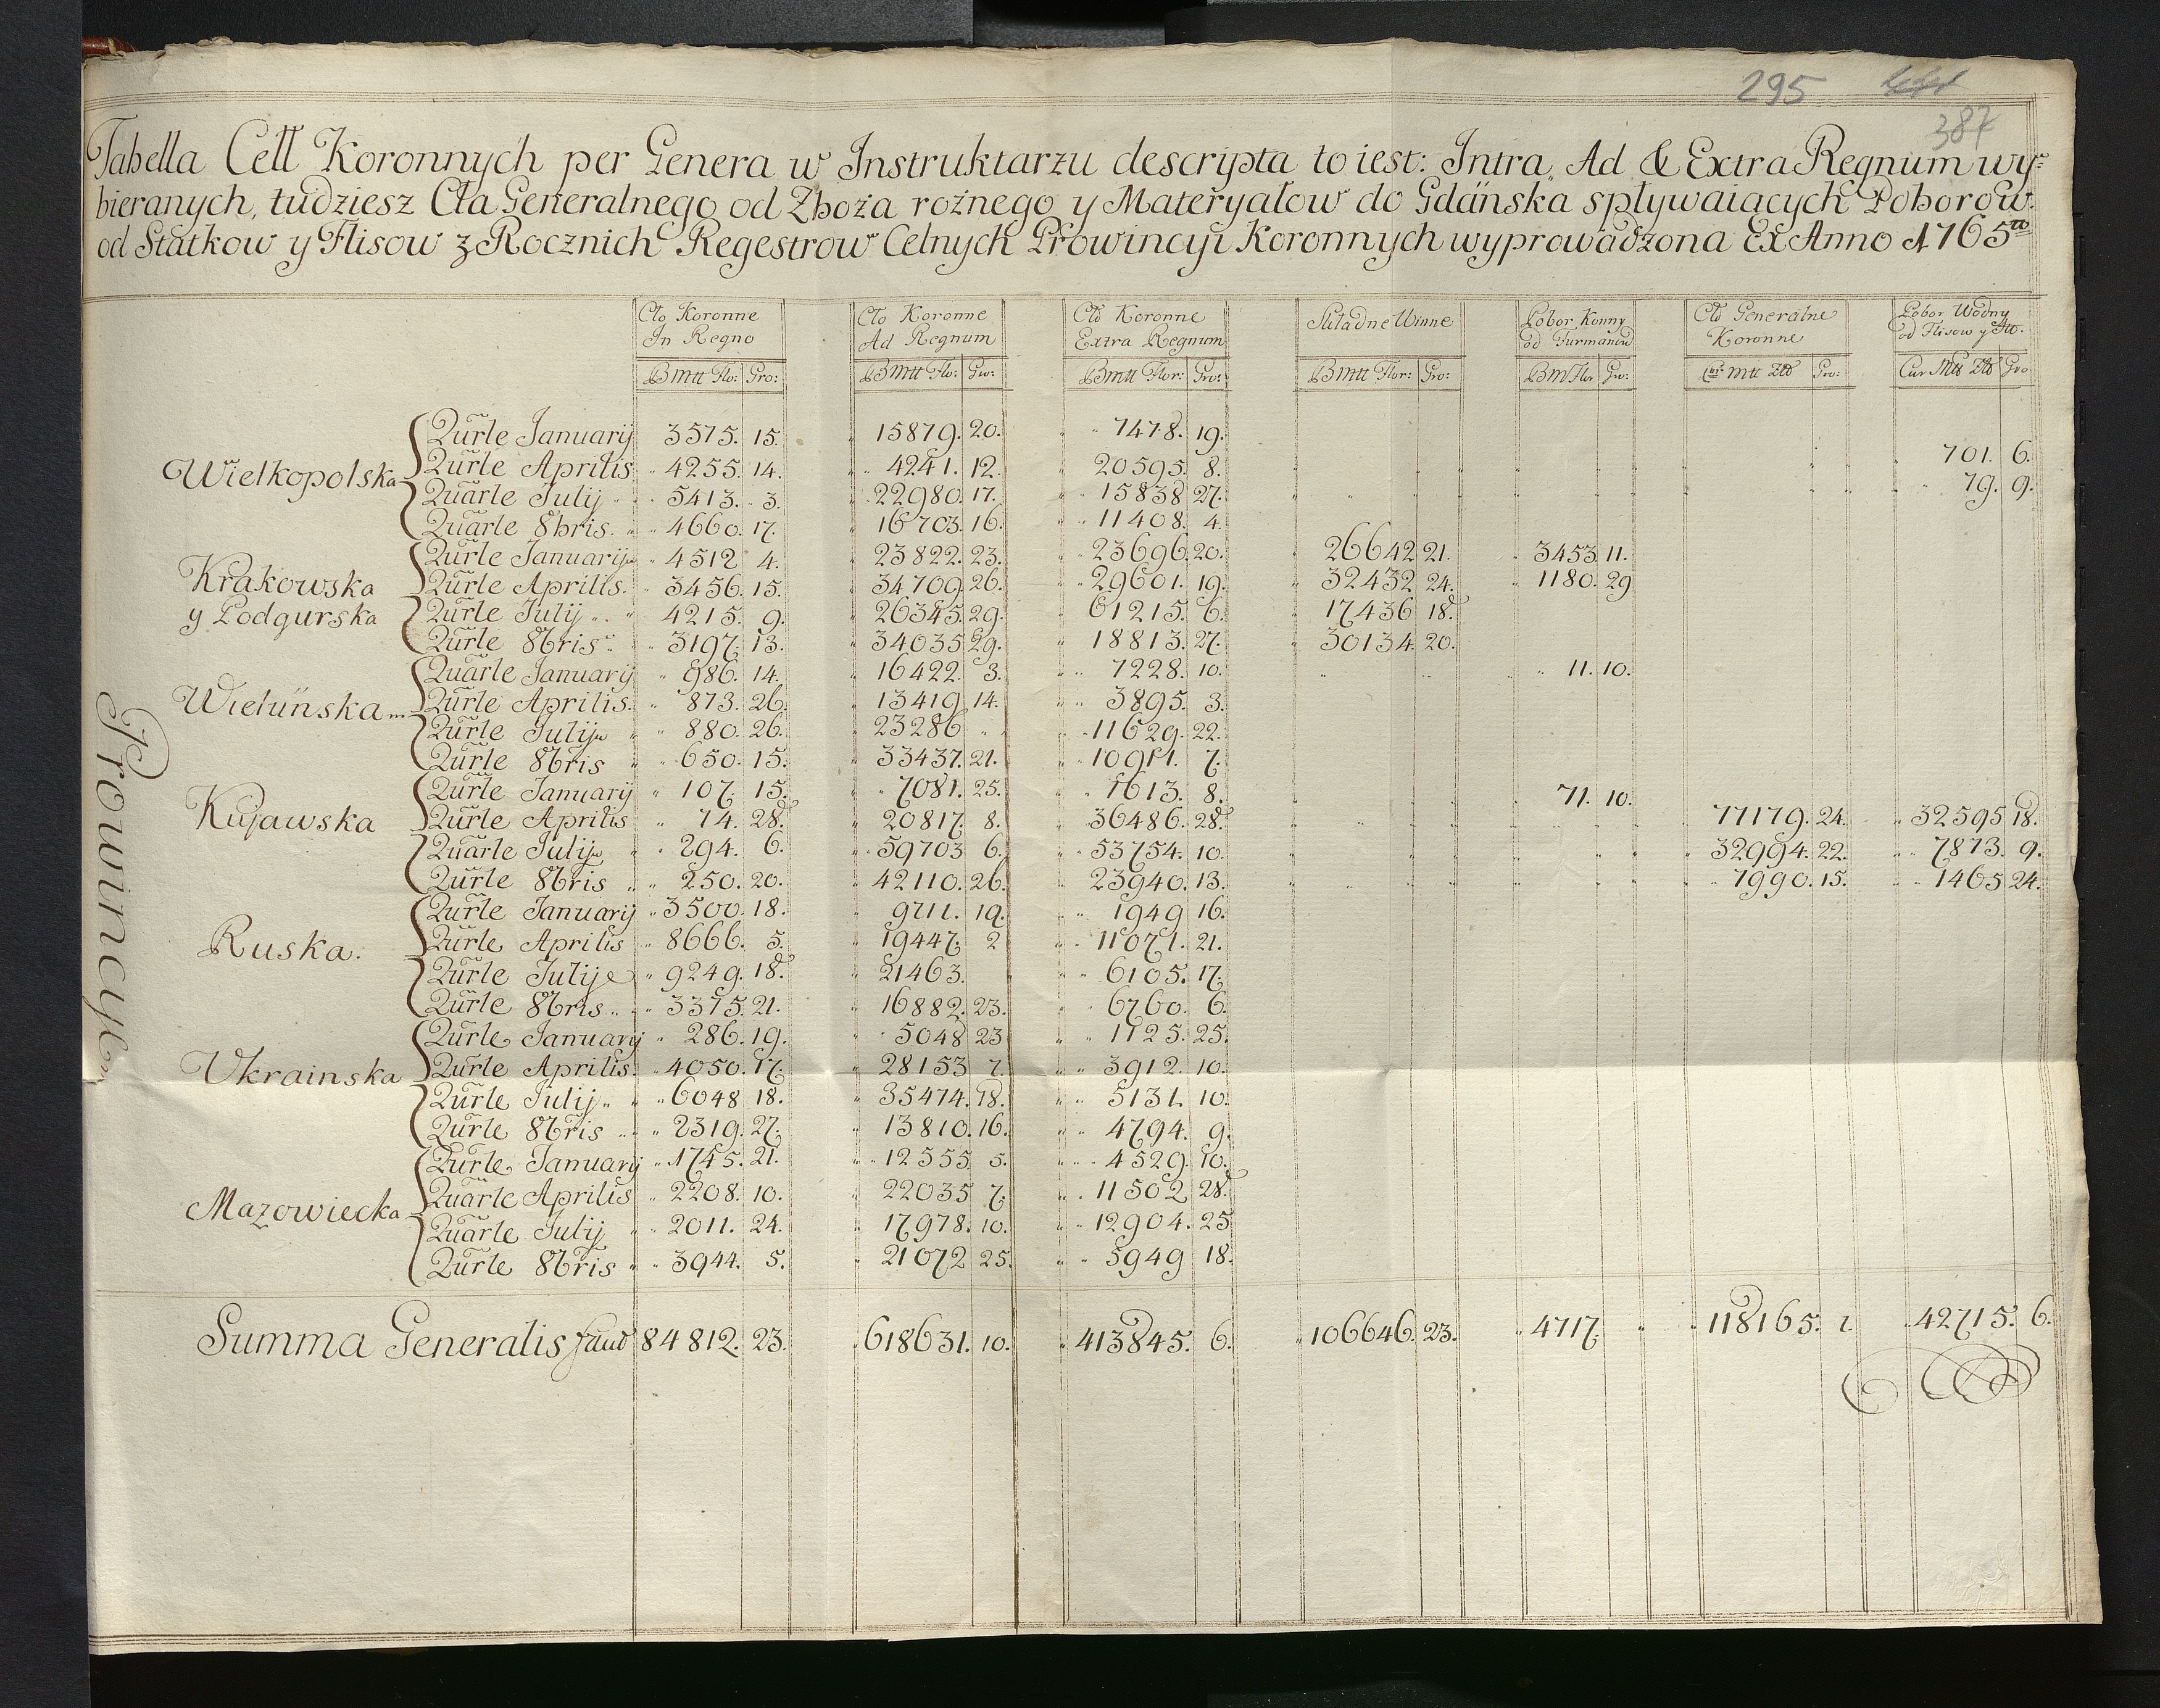 295
387
Tabella Cełł Koronnych per Genera w Instruktarzu descripta to iest: Intra, Ad & Extra Regnum wy-
bieranych, tudziesz Cła Generalnego od Zboża rożnego y Materyałow do Gdańska spływaiących Poborow
od Statkow y Flisow z Rocznich Regestrow Celnych Prowincyi Koronnych wyprowadzona Ex Anno 1765to
Cło Koronne In Regno | Cło Koronne Ad Regnum | Cło Koronne Extra Regnum | Składne Winne | Pobor Konny od Furmanow | Cło Generalne Koronne | Pobor Wodny od Flisow y
Bmtt Flo: Gro: | Bmtt Flo: Gro: | Bmtt Flor: Gro: | Bmtt Flor: Gro: | Bm Flor Gro: | Curr mtt Zło Gro: | Cur Mtt Zło Gro
Prowincye
Wielkopolska
Qurle January 3575. 15. 15879. 20. 7478. 19.
Qurle Aprilis 4255. 14. 4241. 12. 20595. 8. 701. 6.
Quarle July 5413. 3. 22980. 17. 15838 27. 79. 9.
Quarle 8bris. 4660. 17. 16703. 16. 11408. 4.
Krakowska y Podgurska
Qurle January 4512 4. 23822. 23. 23696. 20. 26642 21. 3453 11.
Qurle Aprilis. 3456. 15. 34709. 26. 29601. 19. 32432 24. 1180. 29
Qurle July 4215. 9. 26345. 29. 61215. 6. 17436 18.
Qurle 8bris 3197. 13. 34035 29. 18813. 27. 30134. 20.
Wieluńska
Quarle January 986. 14. 16422. 3. 7228. 10. 11. 10.
Qurle Aprilis. 873. 26. 13419 14. 3895. 3.
Qurle July 880. 26. 23286 11629. 22.
Qurle 8bris 650. 15. 33437. 21. 10911. 7.
Kujawska
Qurle January 107. 15. 7081. 25. 1613. 8. 71. 10.
Qurle Aprilis 74. 28. 20817. 8. 36486. 28. 77179. 24. 32595 18.
Quarle July 294. 6. 59703 6. 53754. 10. 32994. 22. 7873. 9.
Qurle 8bris 250. 20. 42110. 26. 23940. 13. 7990. 15. 1465 24.
Ruska.
Qurle January 3500. 18. 9711. 19. 1949 16.
Qurle Aprilis 8666. 5. 19447. 2 11071. 21.
Qurle July 9249. 18. 21463. 6105. 17.
Qurle 8bris 3375. 21. 16882. 23. 6760. 6.
Vkrainska
Qurle January 286. 19. 5048 23 1125. 25.
Qurle Aprilis 4050. 17. 28153 7. 3912. 10.
Qurle July 6048 18. 35474. 18. 5131. 10.
Qurle 8bris 2319. 27. 13810. 16. 4794. 9.
Mazowiecka
Qurle January 1745. 21. 12555 5. 4529. 10.
Quarle Aprilis 2208. 10. 22035 7. 11502 28.
Quarle July 2011. 24. 17978. 10. 12904. 25
Qurle 8bris 3944. 5. 21072 25. 5949 18.
Summa Generalis 84812. 23. 618631. 10. 413845. 6. 106646. 23. 4717. 118165. 1 42715. 6.